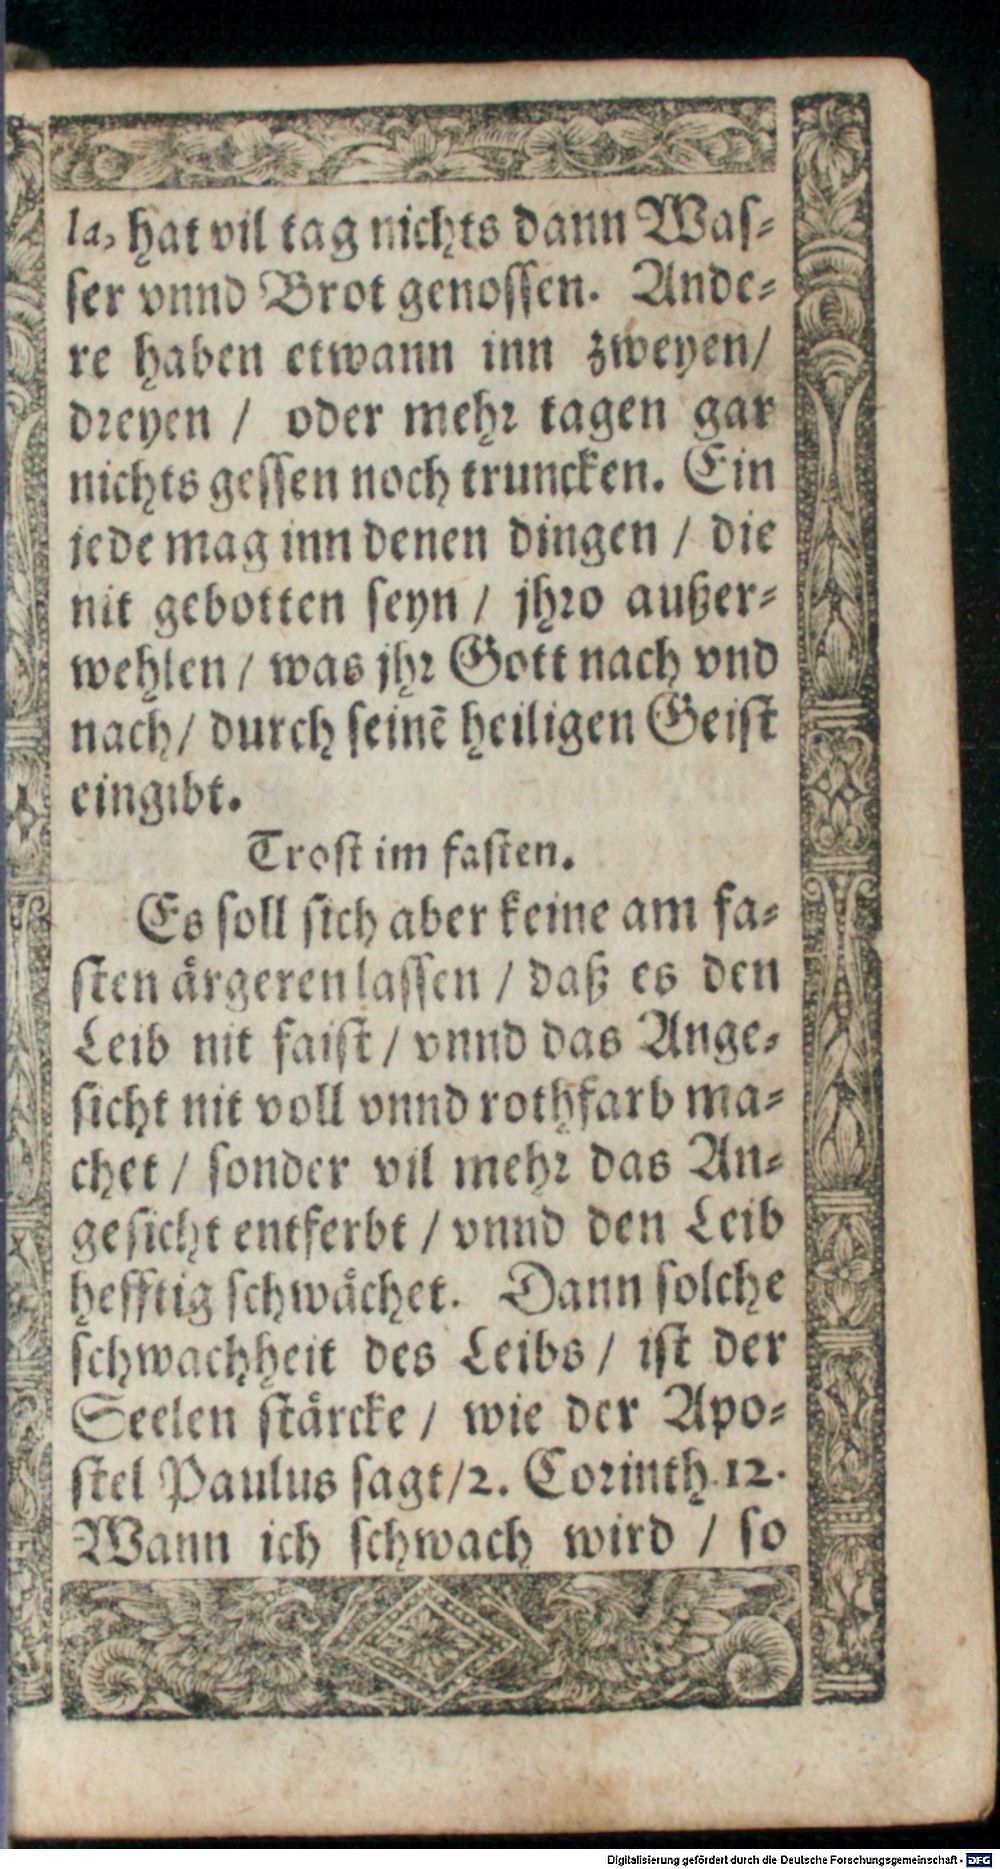 la, hat vil tag nichts dann Was-
ser vnnd Brot genossen. Ande-
re haben etwann inn zweyen/
dreyen / oder mehr tagen gar
nichts gessen noch truncken. Ein
jede mag inn denen dingen / die
nit gebotten seyn / jhro außer-
wehlen / was jhr Gott nach vnd
nach/ durch seinē heiligen Geist
eingibt.
Trost im fasten.
Es soll sich aber keine am fa-
sten aͤrgeren lassen / daß es den
Leib nit faist / vnnd das Ange-
sicht nit voll vnnd rothfarb ma-
chet / sonder vil mehr das An-
gesicht entferbt / vnnd den Leib
hefftig schwaͤchet. Dann solche
schwachheit des Leibs / ist der
Seelen staͤrcke / wie der Apo-
stel Paulus sagt/2. Corinth. 12.
Wann ich schwach wird / so
Digitalisierung gefördert durch die Deutsche Forschungsgemeinschaft - DFG